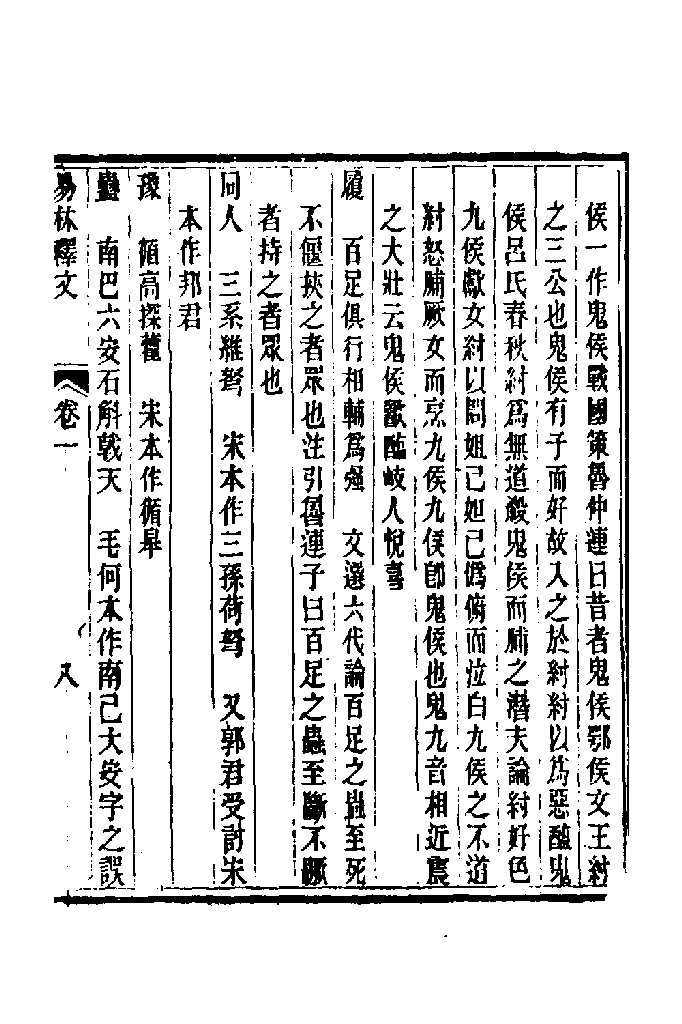 侯一作鬼侯戰國策魯仲連曰昔者鬼侯鄂侯文王紂
之三公也鬼侯有子而好故入之於紂紂以爲惡醢鬼
侯呂氏春秋紂爲無道殺鬼侯而脯之潛夫論紂好色
九侯獻女紂以問妲己妲己僞俯而泣曰九侯之不道
紂怒脯厥女而烹九侯九侯卽鬼侯也鬼九音相近震
之大壯云鬼侯歡醢岐人悅喜
履　百足俱行相輔爲強　文選六代論百足之蟲至死
不僵扶之者眾也注引魯連子曰百足之蟲至斷不蹶
者持之者眾也
同人　三系維弩　宋本作三孫荷弩　又郭君受討宋
本作邦君
豫　循高採藿　宋本作循皋
蠱　南巴六安石斛戟天　毛何本作南己大安字之誤
易林釋文　卷一　八